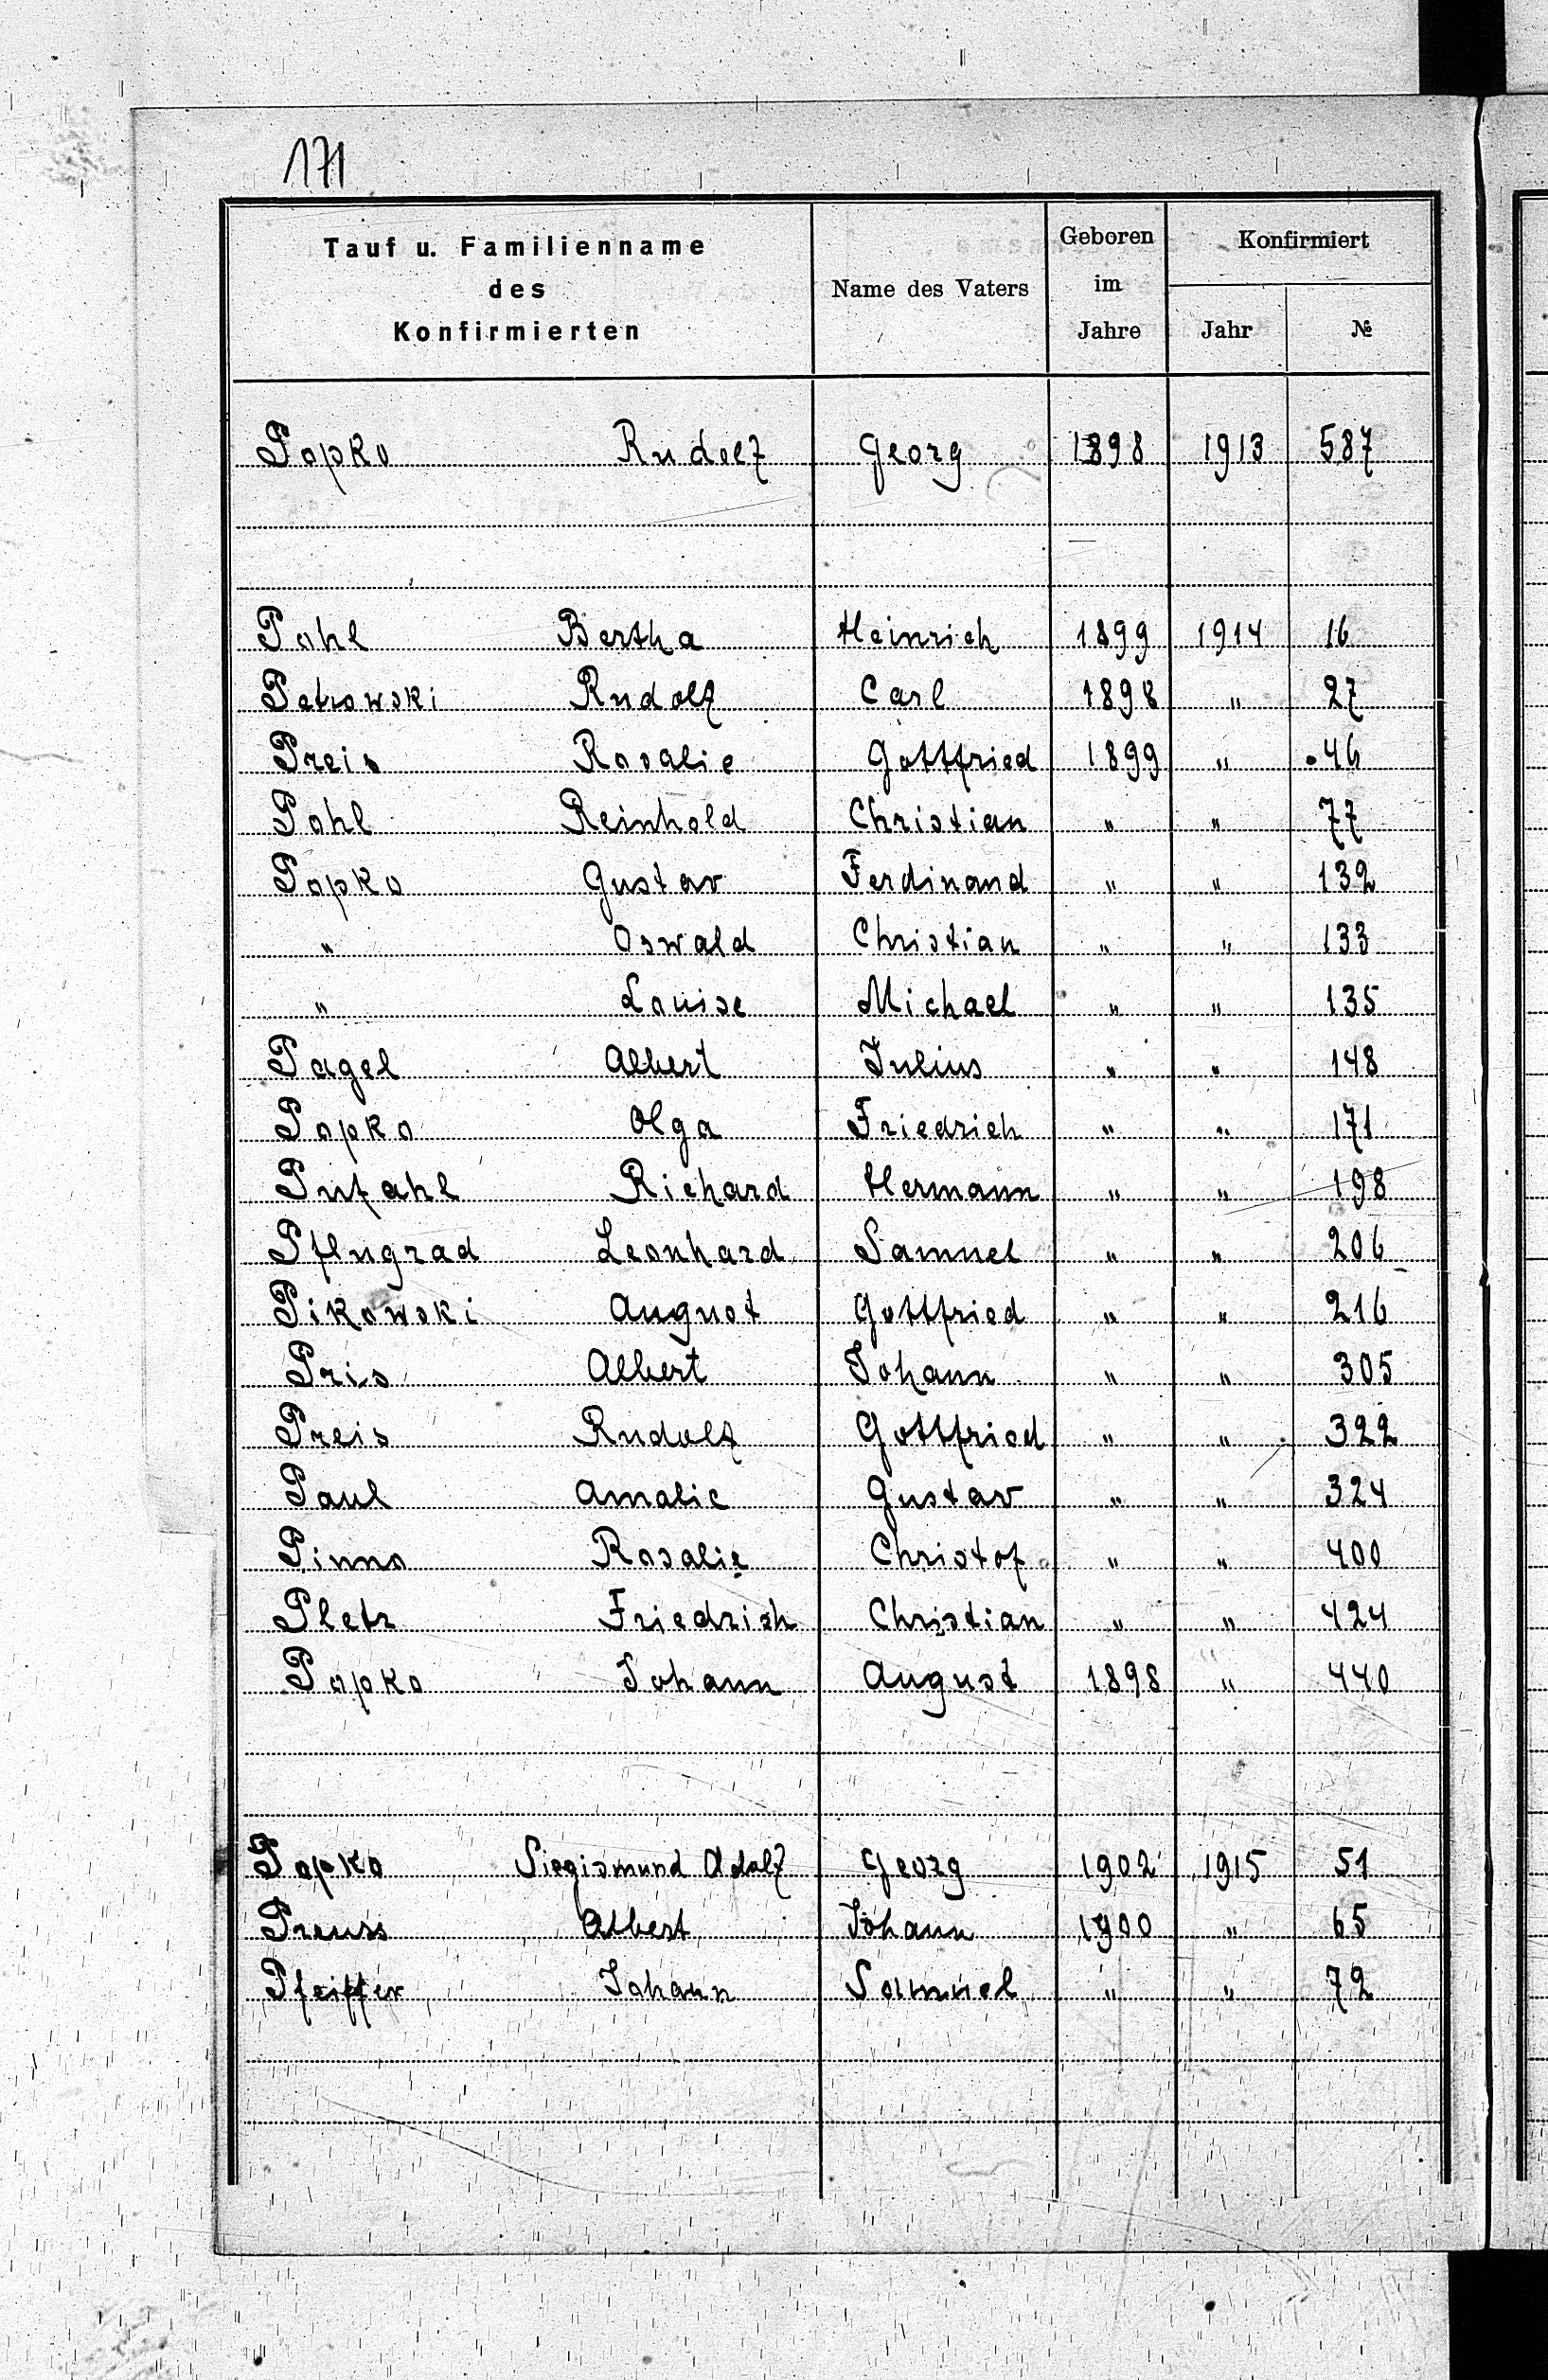 171
Tauf u. Familienname des Konfirmierten Name des Vaters Geboren im Jahre Konfirmiert Jahr №
Popko Rudolf Georg 1898 1913 587
Pohl Bertha Heinrich 1899 1914 16
Petrowski Rudolf Carl 1898 " 27
Preis Rosalie Gottfried 1899 " 46
Pohl Reinhold Christian " " 77
Popko Gustav Ferdinand " " 132
" Oswald Christian " " 133
" Louise Michael " " 135
Pagel Albert Julius " " 148
Popko Olga Friedrich " " 171
Pufahl Richard Hermann " " 198
Pflugrad Leonhard Samuel " " 206
Pikowski August Gottfried " " 216
Pris Albert Johann " " 305
Preis Rudolf Gottfried " " 322
Paul Amalie Gustav " " 324
Pinno Rosalie Christof " " 400
Pletz Friedrich Christian " " 424
Popko Johann August 1898 " 440
Popko Siegismund Adolf Georg 1902 1915 51
Preuss Albert Johann 1900 " 65
Pfeiffer Johann Samuel " " 72